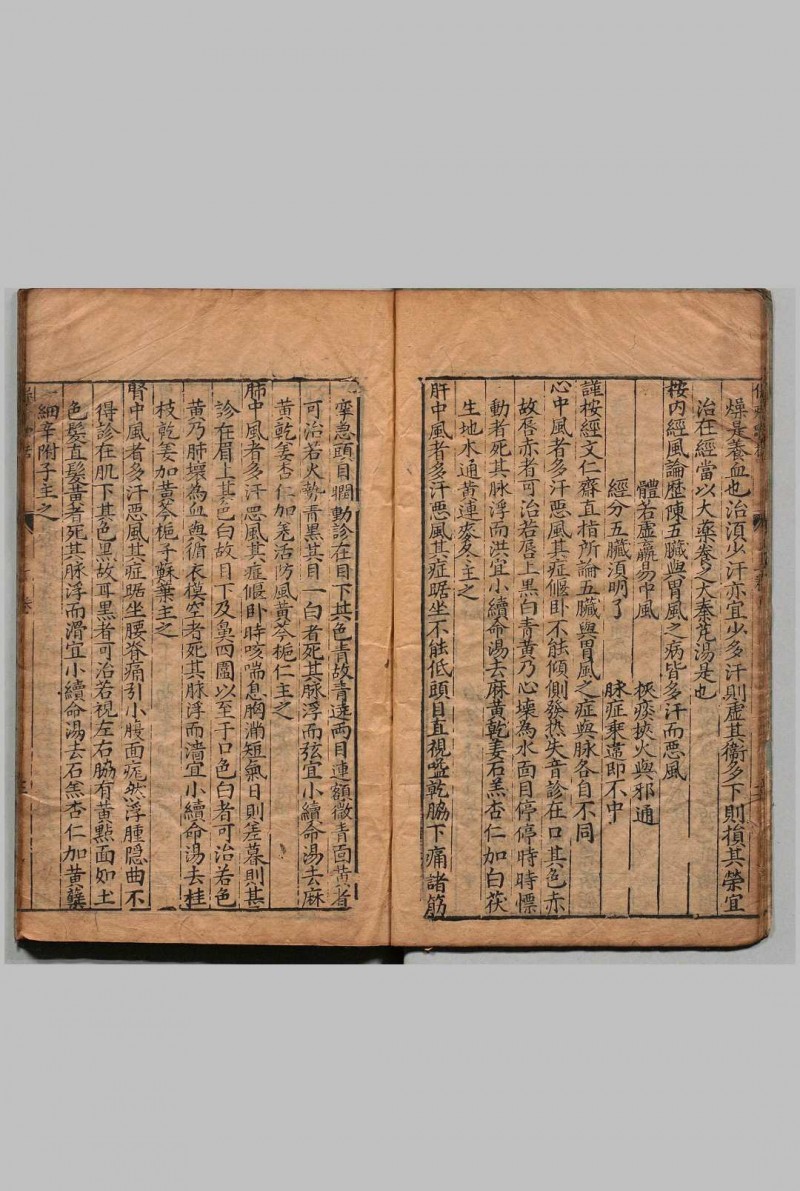 燥是養血也治須少汗亦宜少多汗則虛其衛多下則損其榮宜
治在經當以大藥養之大秦芃湯是也
按內經風論歷陳五臟與胃風之病皆多汗而悪風
體若虛羸易中風 挾痰挾火與邪通
經分五臟須明了 脉症乘違即不中
謹按經文仁齋直指所論五臟與胃風之症與脉各自不同
心中風者多汗悪風其症偃卧不能傾側發热失音診在口其色赤
故唇赤者可治若唇上黒白青黄乃心壞為水面目停停時時慓
動者死其脉浮而洪宜小續命湯去麻黄乾姜石羔杏仁加白茯
生地木通黄連麥冬主之
肝中風者多汗悪風其症踞坐不能低頭目直視嗌乾脇下痛諸筋
攣急頭目瞤動診在目下其色青故青遶兩目連額微青面黄者
可治若大勢青黒其目一白者死其脉浮而弦宜小續命湯去麻
黄乾姜杏仁加羗活防風黄芩梔仁主之
肺中風者多汗悪風其症偃卧時咳喘息胸滿短氣日則差暮則甚
診在眉上其色白故目下及鼻四圍以至于口色白者可治若色
黄乃肺壞為血與循衣模空者死其脉浮而濇宜小續命湯去桂
枝乾姜加黄芩梔子蘇葉主之
腎中風者多汗悪風其症踞坐腰脊痛引小腹面痝然浮腫隱曲不
得診在肌下其色黒故耳黒者可治若視左右脇有黄點面如土
色髮直髮黄者死其脉浮而滑宜小續命湯去石羔杏仁加黄蘗
細辛附子主之